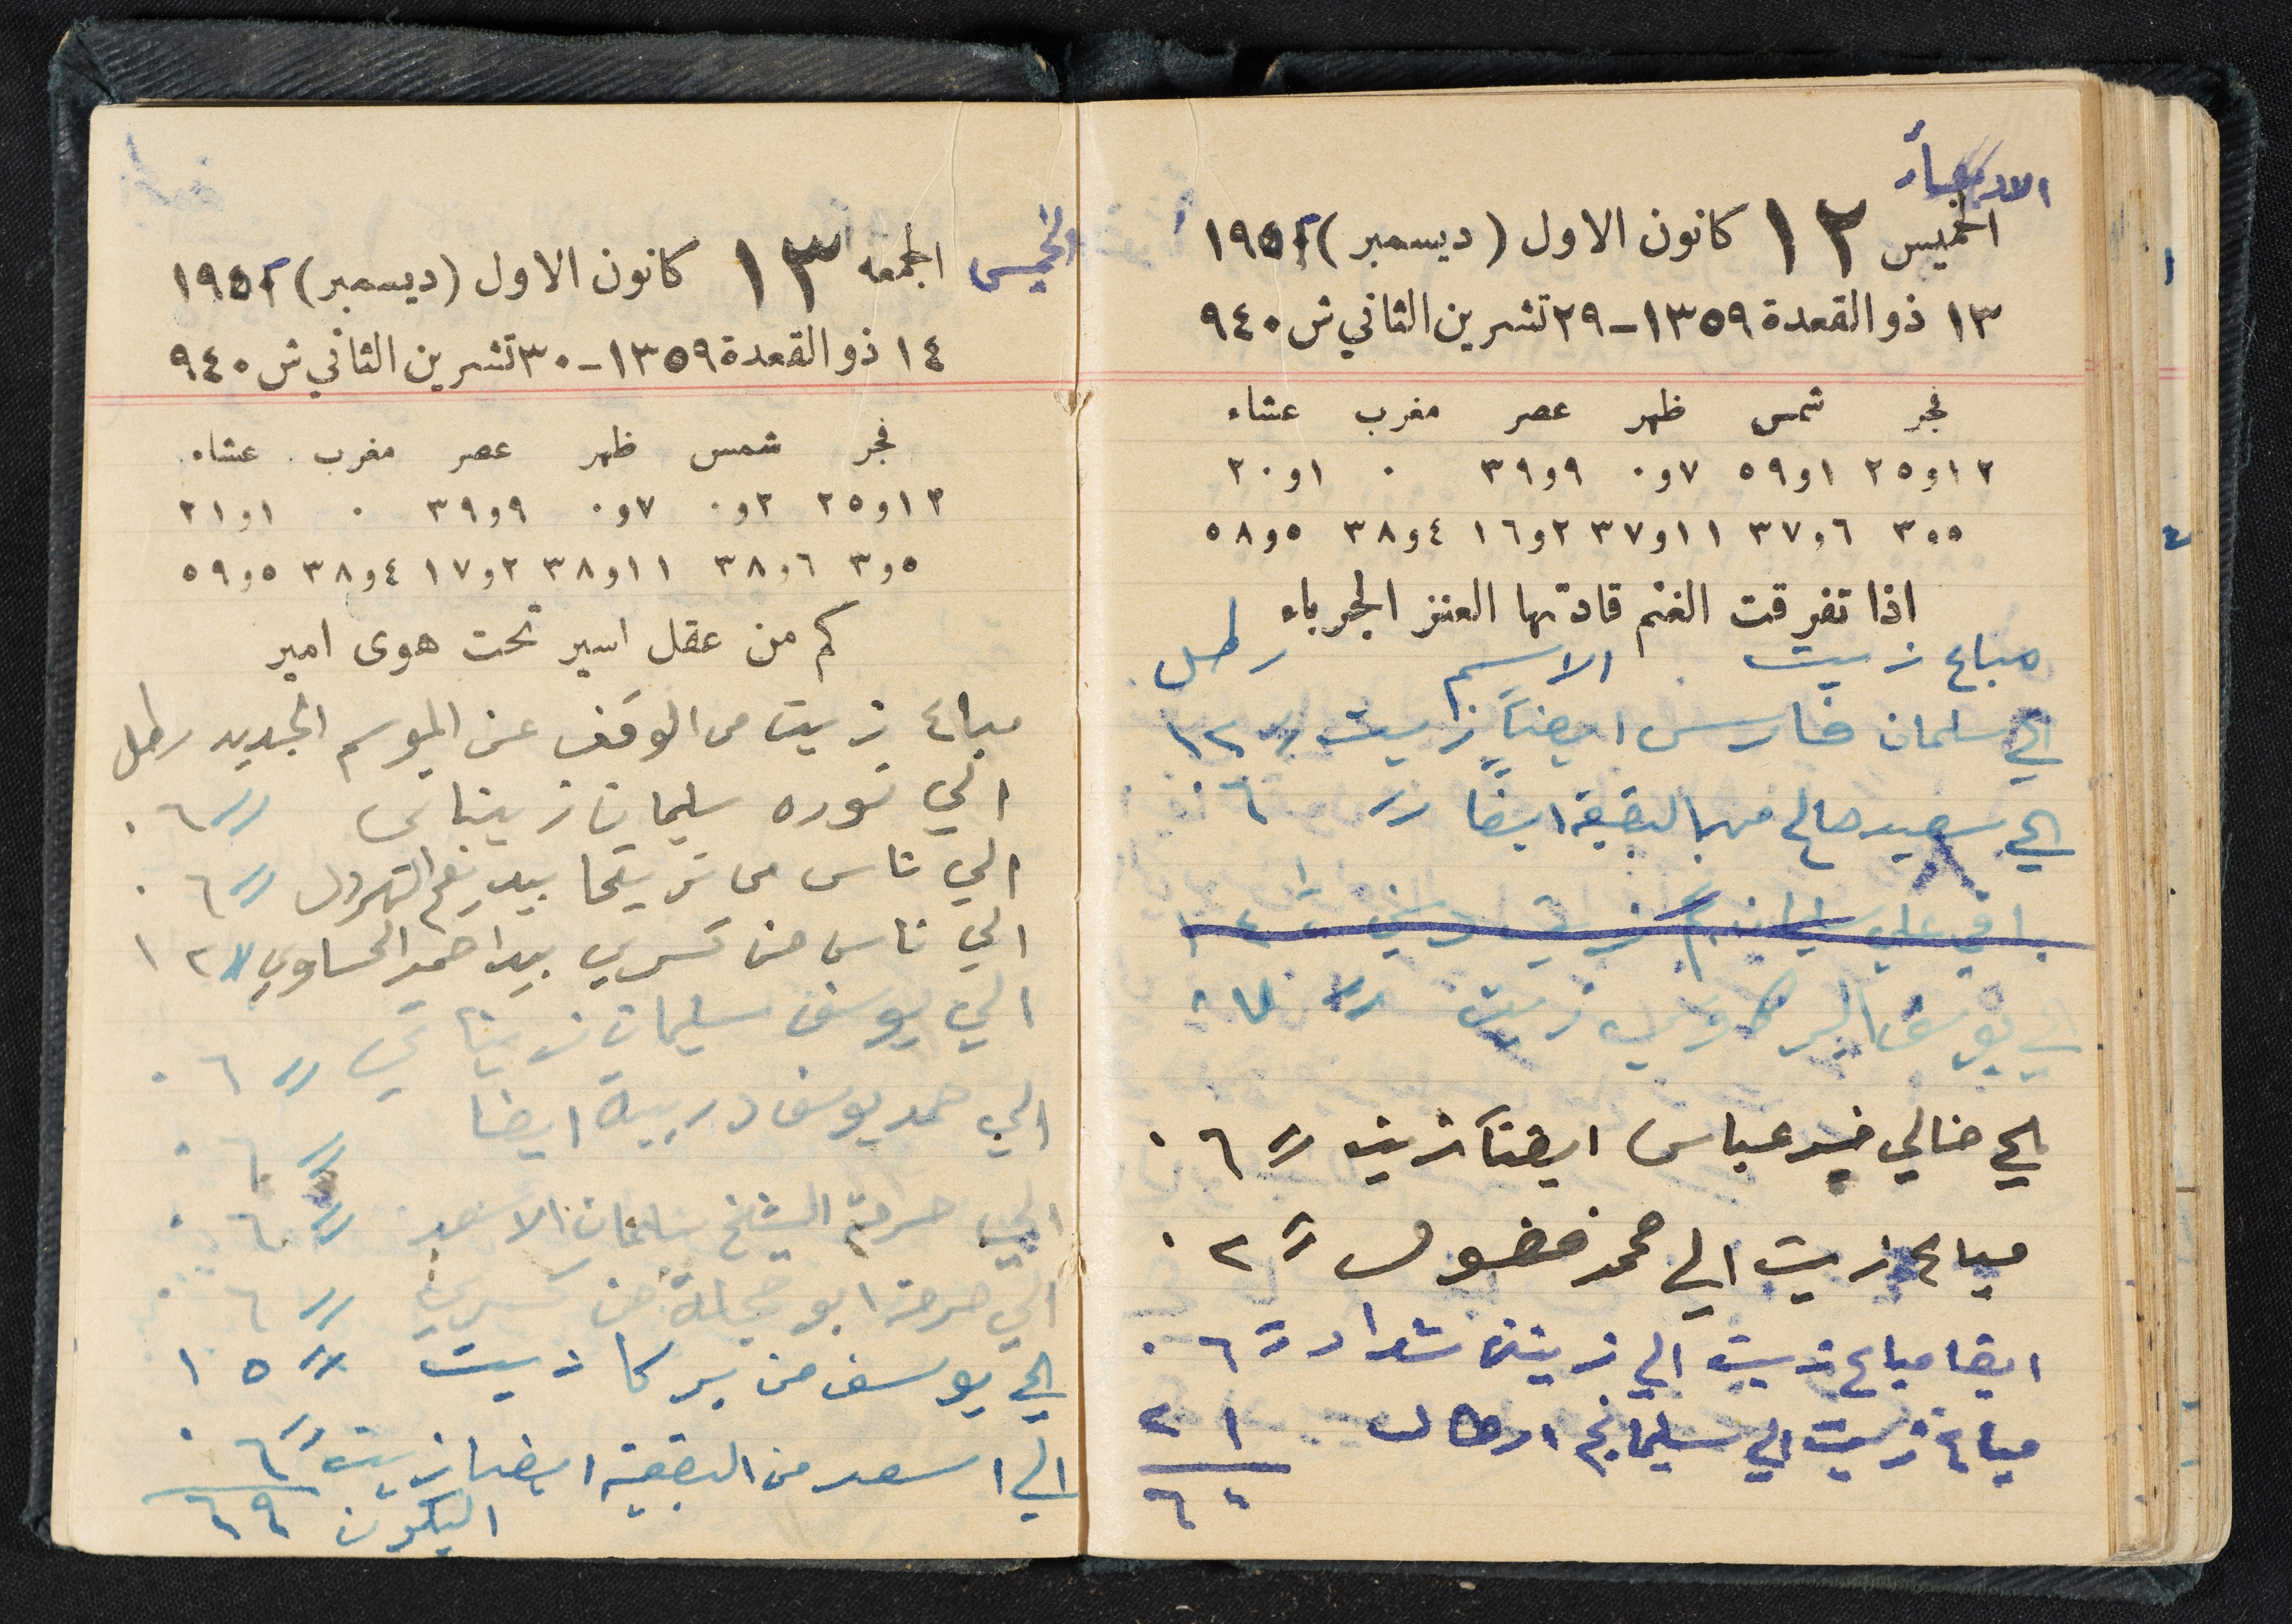 الاربعاء
الخميس ١٢ كانون الاول (ديسمبر) ١٩٥١
١٣ ذو القعدة ١٣٥٩ - ٢٩ تشرين الثاني ش ٩٤٠
فجر شمس ظهر عصر مغرب عشاء
١٢و٢٥ ١و٥٩ ٧و٠ ٩و٣٩ ٠ ١و٢٠
٥و٣ ٦و٣٧ ١١و٣٧ ٢و١٦ ٤و٣٨ ٥و٥٨
اذا تفرقت الغنم قادتها العنز الجرباء
مباع زيت الاسم رطل
الي سلمان فارس ايضاً زيت 〃 ١٢
الي سعيد صالح من البقيعة ايضا 〃 ٠٦
باقي علي
الي يوسف زيت 〃 ٠٧
الي خالي عباس ايضاً زيت 〃 ٠٦
مباع زيت الي محمد فضول 〃 ٠٢
ايضا مباع زيت الي زيتن شداد 〃 ٠٦
مباع زيت الي سليمان ارطال ٢١
٦٠
الخميس
الجمعه ١٣ كانون الاول (ديسمبر) ١٩٥١
١٤ ذو القعدة ١٣٥٩ - ٣٠ تشرين الثاني ش ٩٤٠
فجر شمس ظهر عصر مغرب عشاء
١٢و٢٥ ٢و٠ ٧و٠ ٩و٣٩ ٠ ١و٢١
٥و٣ ٦و٣٨ ١١و٣٨ ٢و١٧ ٤و٣٨ ٥و٥٩
كم من عقل اسير تحت هوى امير
مباع زيت من الوقف عن الموسم الجديد رطل
الي نوره سليمان زيناتي 〃 ٠٦
الي ناس من ترشيحا بيد 〃 ٠٦
الي ناس من كسري بيد احمد الحساوي 〃 ١٢
الي يوسف سليمان زيناتي 〃 ٠٦
الي حمد يوسف دربية ايضا 〃 ٠٦
الي حرمة الشيخ سلمان الاسعد 〃 ٠٦
الي حرمة ابو من كسري 〃 ٠٦
الي يوسف من بركا زيت 〃 ١٥
الي اسعد من البقيعة ايضا زيت 〃 ٠٦
اليكون ٦٩